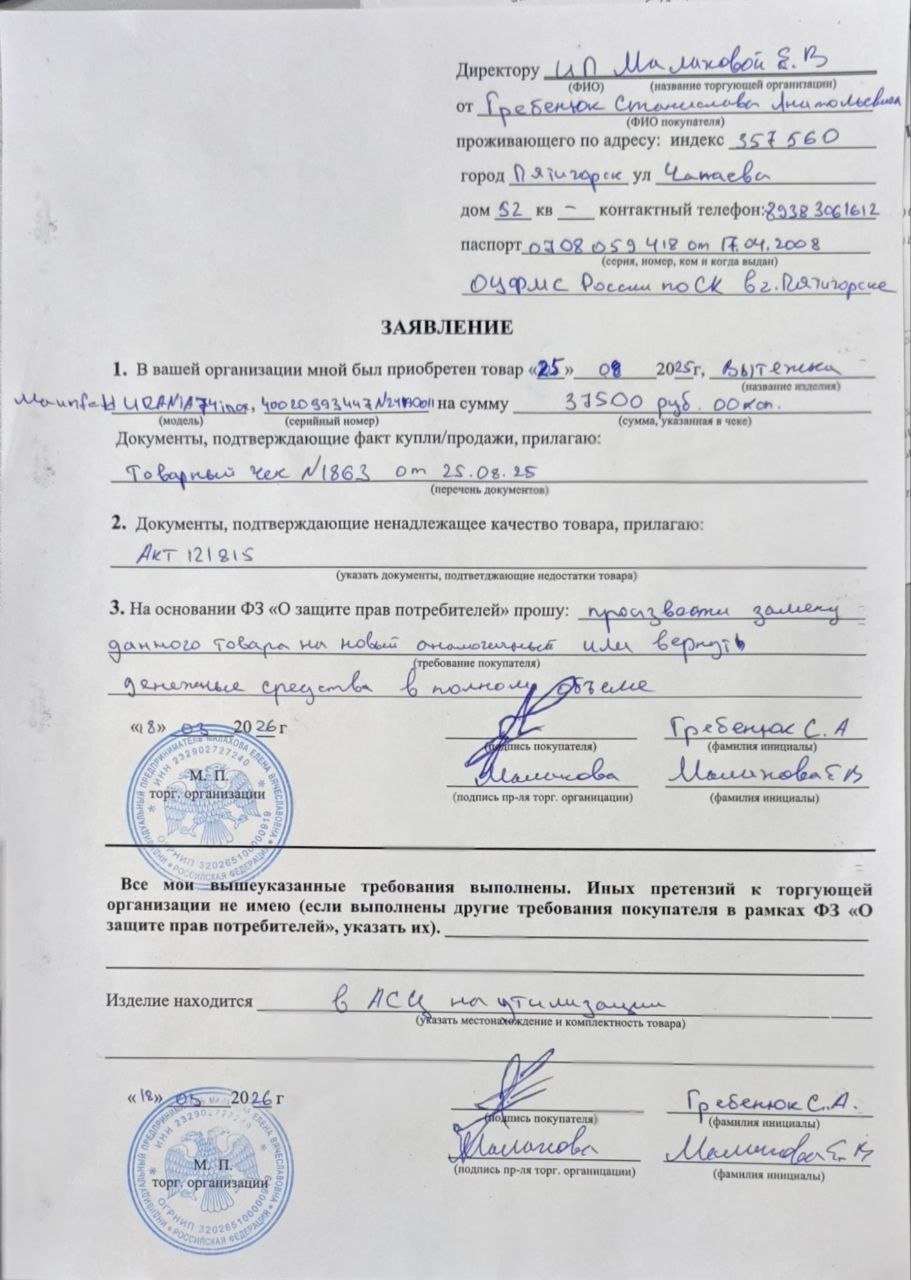 Директору ИП Малаховой Е.В
(ФИО) (название торгующей организации)
от Гребенюк Станислава Анатольевича
(ФИО покупателя)
проживающего по адресу: индекс 357 560
город Пятигорск ул Чапаева
дом 52 кв — контактный телефон: 8938 3061612
паспорт 0708 059 418 от 17.04.2008
(серия, номер, кем и когда выдан)
ОУФМС России по СК в г. Пятигорске
ЗАЯВЛЕНИЕ
1. В вашей организации мной был приобретен товар «25» 08 2025г, Вытяжка
(название изделия)
Maunfeld URANIA 74 inox, на сумму 37500 руб. 00 коп.
(модель) (серийный номер) (сумма, указанная в чеке)
Документы, подтверждающие факт купли/продажи, прилагаю:
Товарный чек N1863 от 25.08.25
(перечень документов)
2. Документы, подтверждающие ненадлежащее качество товара, прилагаю:
Акт 121815
(указать документы, подтветджающие недостатки товара)
3. На основании ФЗ «О защите прав потребителей» прошу: произвести замену
данного товара на новый аналогичный или вернуть
(требование покупателя)
денежные средства в полном объеме
«18» 03 2026 г Гребенюк С. А
(подпись покупателя) (фамилия инициалы)
М. П.
торг. организации
Малахова Малахова Е В
(подпись пр-ля торг. органицации) (фамилия инициалы)
ИНДИВИДУАЛЬНЫЙ ПРЕДПРИНИМАТЕЛЬ МАЛАХОВА ЕЛЕНА ВЯЧЕСЛАВОВНА * РОССИЙСКАЯ ФЕДЕРАЦИЯ *
* ИНН 232902727240 * ОГРНИП 320265100000919
Все мои вышеуказанные требования выполнены. Иных претензий к торгующей
организации не имею (если выполнены другие требования покупателя в рамках ФЗ «О
защите прав потребителей», указать их).
Изделие находится в АСЦ на утилизации
(указать местонахождение и комплектность товара)
«18» 03 2026 г Гребенюк С.А.
(подпись покупателя) (фамилия инициалы)
М. П.
торг. организации
Малахова Малахова Е. В
(подпись пр-ля торг. органицации) (фамилия инициалы)
ИНДИВИДУАЛЬНЫЙ ПРЕДПРИНИМАТЕЛЬ МАЛАХОВА ЕЛЕНА ВЯЧЕСЛАВОВНА * РОССИЙСКАЯ ФЕДЕРАЦИЯ *
* ИНН 232902727240 * ОГРНИП 320265100000919